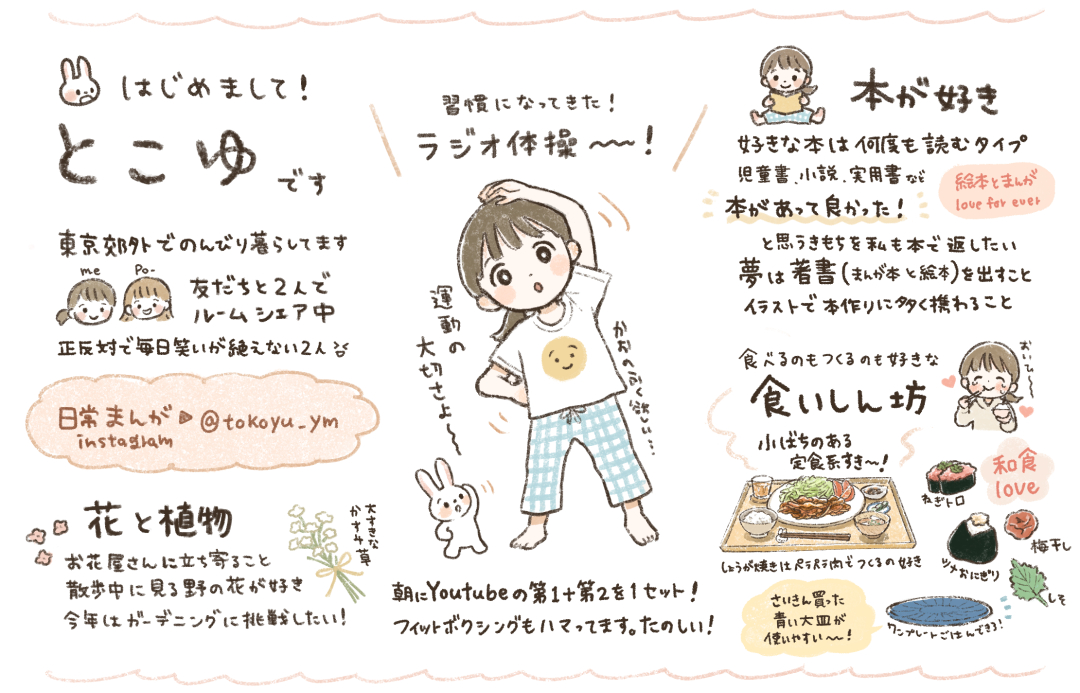 はじめまして！
とこゆ
です
東京郊外でのんびり暮らしてます
me
Po-
友だちと2人で
ルームシェア中
正反対で毎日笑いが絶えない2人
日常まんが▷@tokoyu_ym
instagram
花と植物
お花屋さんに立ち寄ること
散歩中に見る野の花が好き
今年はガーデニングに挑戦したい！
大すきな
かすみ草
習慣になってきた！
ラジオ体操〜〜！
運動の
大切さよ〜〜
朝にYoutubeの第1+第2を1セット！
フィットボクシングもハマってます。たのしい！
本が好き
好きな本は何度も読むタイプ
児童書、小説、実用書など
絵本とまんが
love for ever
本があって良かった！
と思うきもちを私も本で返したい
夢は著書(まんが本と絵本)を出すこと
イラストで本作りに多く携わること
食べるのもつくるのも好きな
食いしん坊
おいひ〜〜
小ばちのある
定食系すき〜！
和食
love
ねぎトロ
梅干し
ツメおにぎり
しそ
しょうが焼きはペラペラ肉でつくるの好き
さいきん買った
青い大皿が
使いやすい〜〜！
ワンプレートごはんできる！